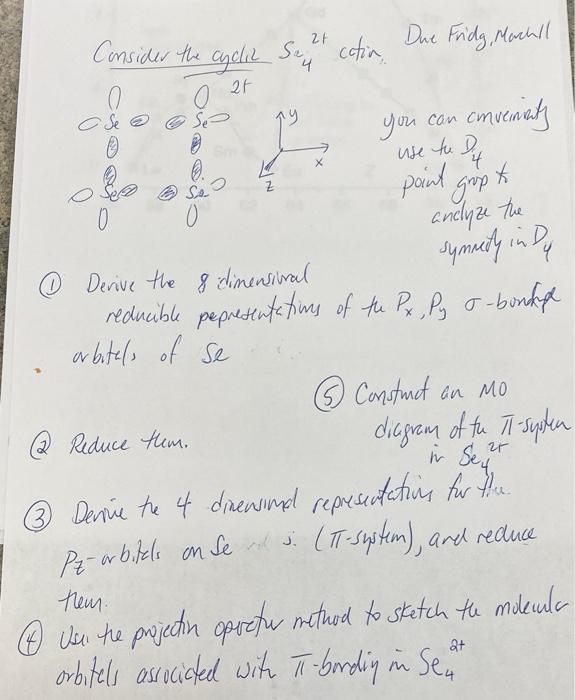 Due Friday, March 11
Consider the cyclic Se4 2+ cation.
2+
Se Se
y
x
z
Se Se
you can conveniently
use the D4
point group to
analyze the
symmetry in D4
① Derive the 8 dimensional
reducible representations of the Px, Py σ-bonding
orbitals of Se
⑤ Construct an MO
diagram of the π-system
in Se4 2+
② Reduce them.
③ Derive the 4 dimensional representations for the
Pz-orbitals on Se (π-system), and reduce
them.
④ Use the projection operator method to sketch the molecular
orbitals associated with π-bonding in Se4 2+